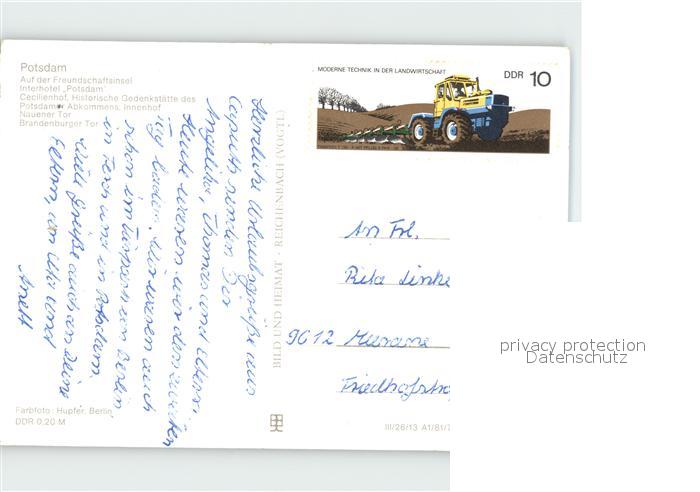 Potsdam
Auf der Freundschaftsinsel
Interhotel „Potsdam"
Cecilienhof, Historische Gedenkstätte des
Potsdamer Abkommens, Innenhof
Nauener Tor
Brandenburger Tor
MODERNE TECHNIK IN DER LANDWIRTSCHAFT
DDR 10
Herzliche Urlaubsgrüße aus
Caputh senden Dir
Angelika, Thomas und Eltern.
Heute waren wir den zweiten
Tag baden. Wir waren auch
schon im Tierpark von Berlin,
in Ferch und in Potsdam.
Viele Grüße auch an Deine
Eltern, an Uli und
Anett
BILD UND HEIMAT · REICHENBACH (VOGTL)
An Frl.
Rita Linke
9612 Meerane
Friedhofstr
Farbfoto: Hupfer, Berlin
DDR 0,20 M
III/26/13 A1/81/
privacy protection
Datenschutz